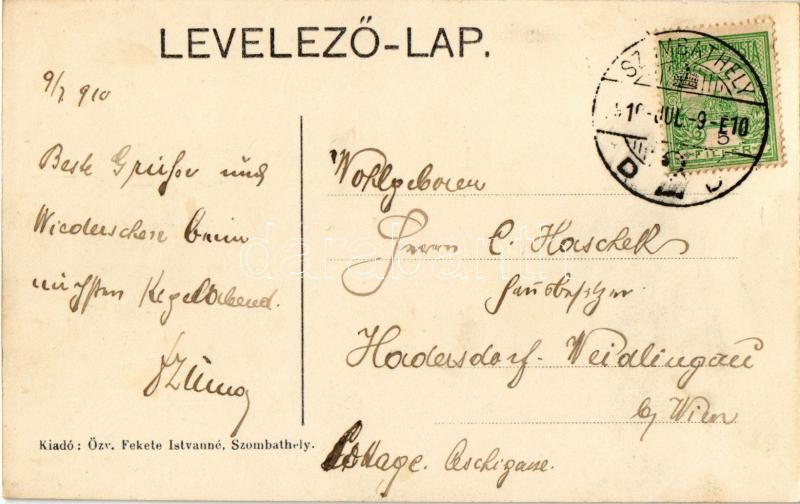 LEVELEZŐ-LAP.
SZOMBATHELY
910 JUL. -9 -E10
D
5
FILLÉR
9/7 910
Beste Grüße und
Wiedersehen beim
nächsten Kegelabend.
Wohlgeboren
Herrn C. Haschek
Hausbesitzer
Hadersdorf-Weidlingau
bei Wien
Cottage.
Kiadó: Özv. Fekete Istvanné, Szombathely.
darabanth